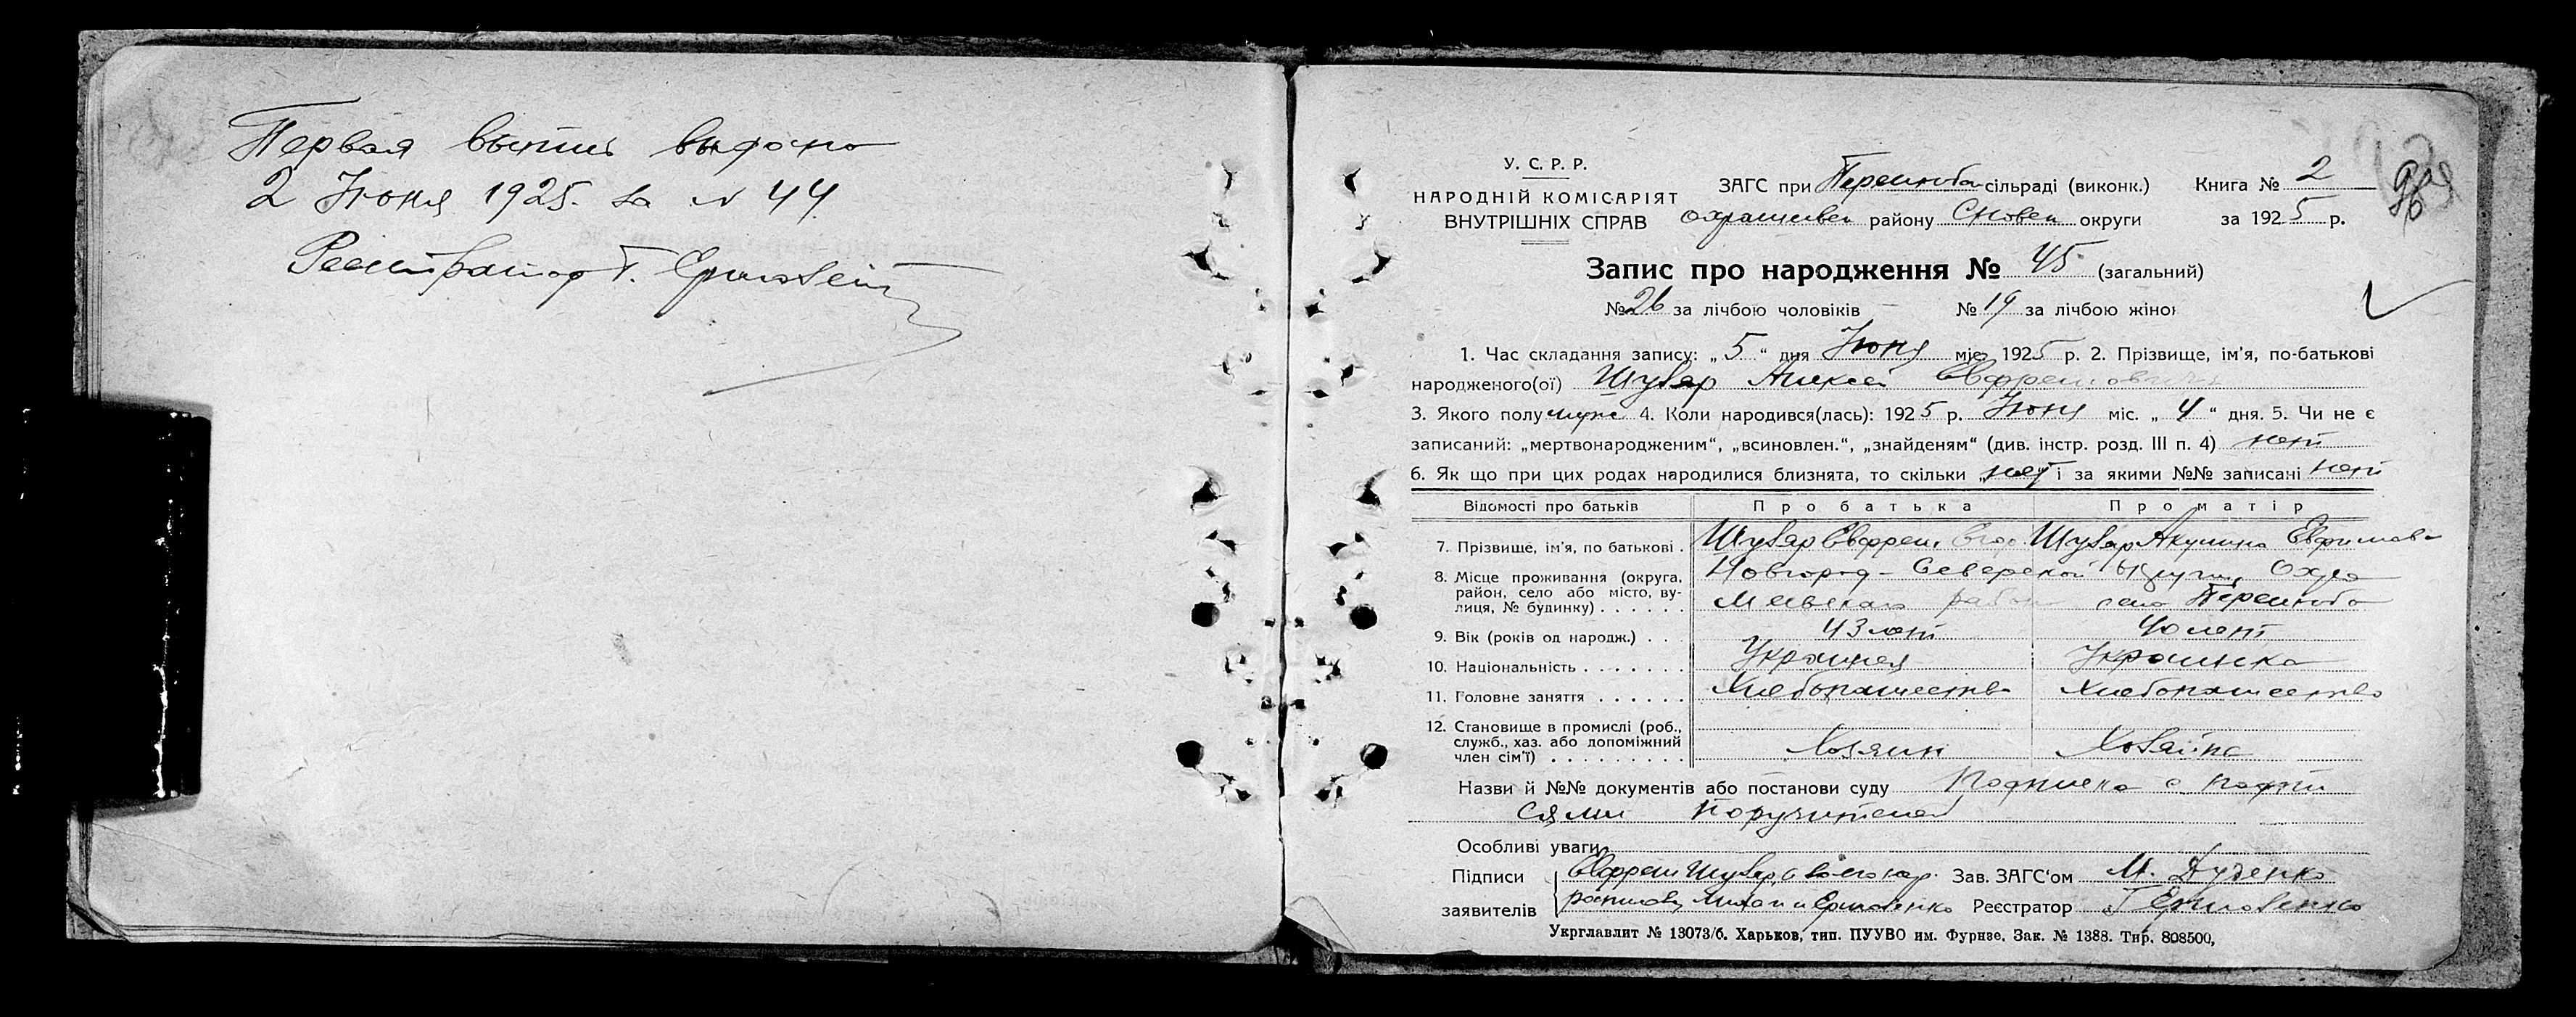 Первая выпись выдана
2 Июня 1925. за № 44
Регистратор Г.
У. С. Р. Р.
НАРОДНІЙ КОМІСАРІЯТ
ВНУТРІШНІХ СПРАВ
ЗАГС при Перелюбс сільраді (виконк.) Книга № 2
району Сновск округи за 1925 р.
Запис про народження № 45 (загальний)
№ 26 за лічбою чоловіків № 19 за лічбою жінок
1. Час складання запису: „ 5 “ дня Июня міс. 1925 р. 2. Прізвище, ім'я, по-батькові
народженого(ої) Шубар Алексей
3. Якого полу муж 4. Коли народився(лась): 1925 р. Июня міс. „ 4 “ дня. 5. Чи не є
записаний: „мертвонародженим“, „всиновлен.“, „знайденям“ (див. інстр. розд. III п. 4) нет
6. Як що при цих родах народилися близнята, то скільки „нет і за якими №№ записані нет
Відомості про батьків Про батька Про матір
7. Прізвище, ім'я, по батькові . Шубар Шубар Акулина
8. Місце проживання (округа, Новгород-Северской округи,
район, село або місто, ву- село
лиця, № будинку) . . . . . .
9. Вік (років од народж.) . . 43 лет 40 лет
10. Національність . . . . . . . Украинец Украинка
11. Головне заняття . . . . . . Хлебопашество Хлебопашество
12. Становище в промислі (роб.,
служб., хаз. або допоміжний
член сім'ї) . . . . . . . . . Хозяин Хозайка
Назви й №№ документів або постанови суду Подписка с
поручителей
Особливі уваги
Підписи Шубар, Зав. ЗАГС'ом М.
заявителів Реєстратор Г Ермоленко
Укрглавлит № 13073/б. Харьков, тип. ПУУВО им. Фрунзе. Зак. № 1388. Тир. 808500,